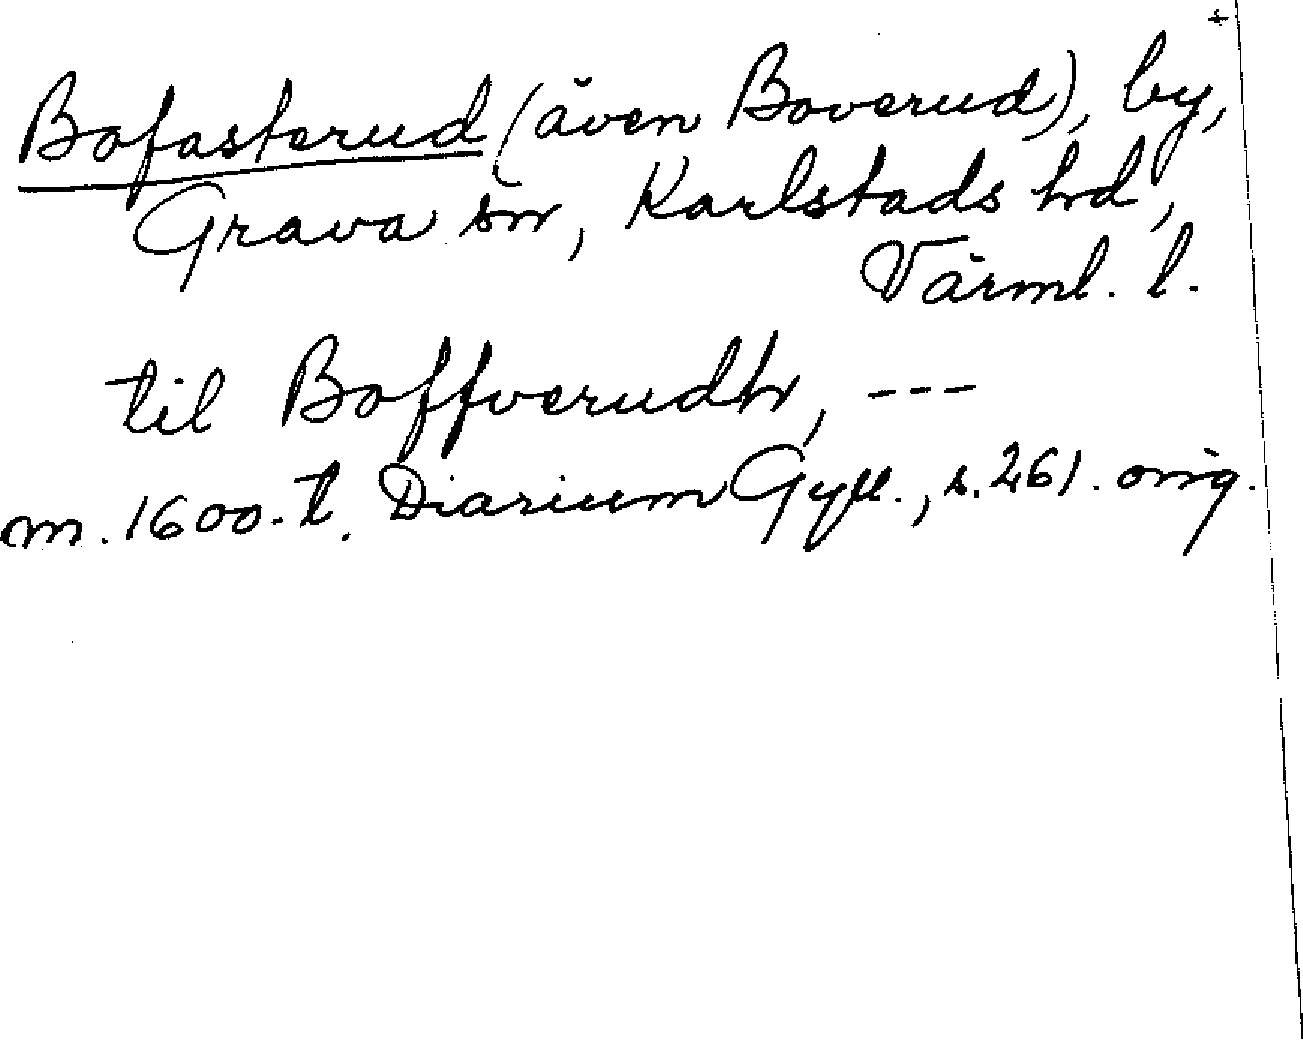 Bofasterud (även Boverud), by,
Grava sn, Karlstads hd,
Värml. l.
til Boffverudh, ---
m. 1600-t. Diarium Gyll., s. 261. orig.